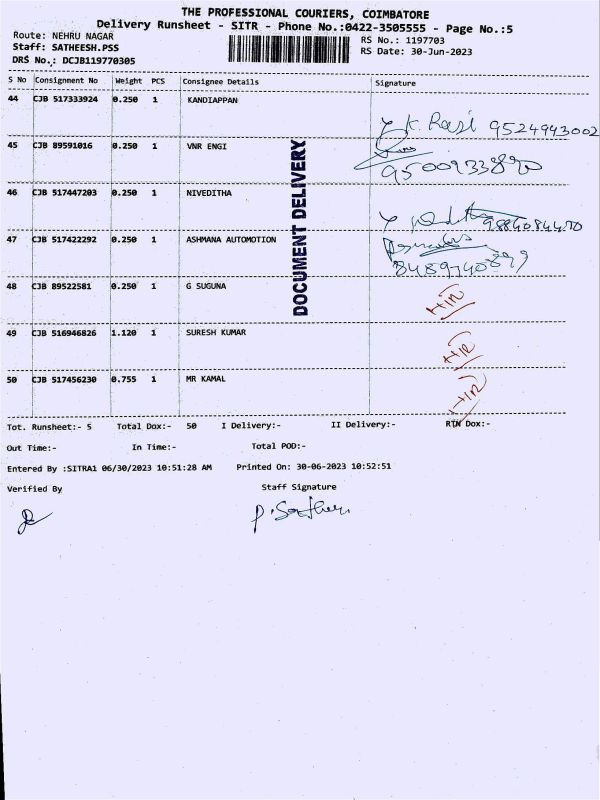 THE PROFESSIONAL COURIERS, COIMBATORE
Delivery Runsheet - SITR - Phone No.:0422-3505555 - Page No.:5
Route: NEHRU NAGAR
RS No.: 1197703
Staff: SATHEESH.PSS
RS Date: 30-Jun-2023
DRS No.: DCJB119770305
S No Consignment No Weight PCS Consignee Details Signature
44 CJB 517333924 0.250 1 KANDIAPPAN
K. Rasi 9524943002
45 CJB 89591016 0.250 1 VNR ENGI
9500933890
46 CJB 517447203 0.250 1 NIVEDITHA
9884084450
47 CJB 517422292 0.250 1 ASHMANA AUTOMOTION
8489740899
DOCUMENT DELIVERY
48 CJB 89522581 0.250 1 G SUGUNA
49 CJB 516946826 1.120 1 SURESH KUMAR
50 CJB 517456230 0.755 1 MR KAMAL
Tot. Runsheet:- 5 Total Dox:- 50 I Delivery:- II Delivery:- RTN Dox:-
Out Time:- In Time:- Total POD:-
Entered By :SITRA1 06/30/2023 10:51:28 AM Printed On: 30-06-2023 10:52:51
Verified By Staff Signature